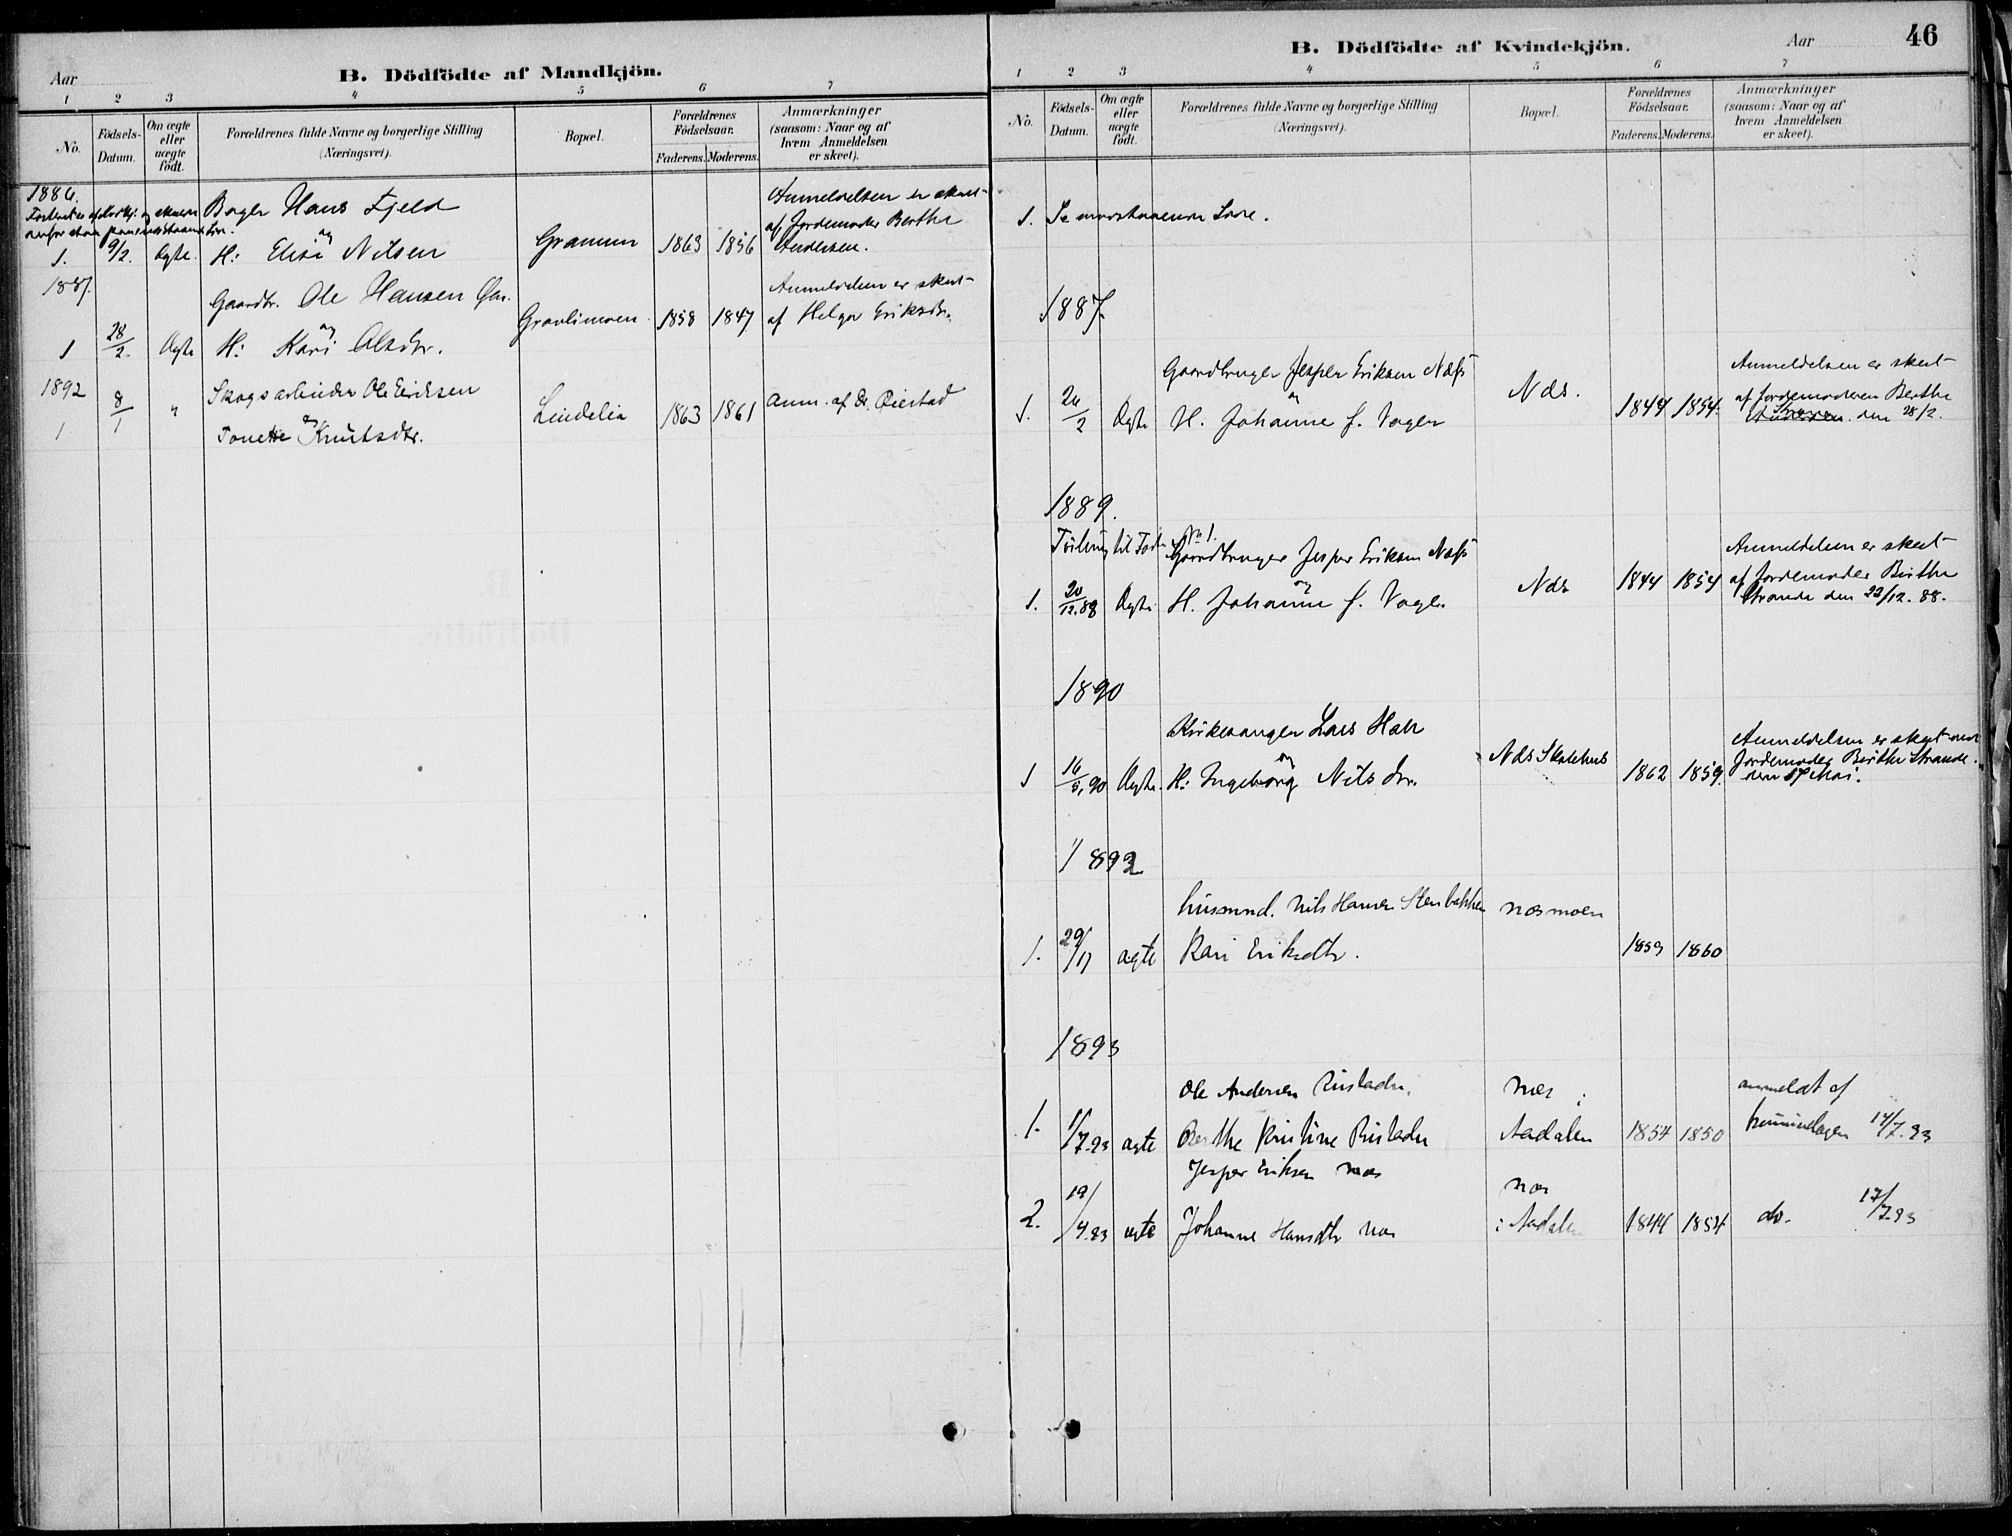 Aar
B. Dödfödte af Mandkjön.
1 2 3 4 5 6 7
No.
Födsels-Datum.
Om ægte eller uægte födt.
Forældrenes fulde Navne og borgerlige Stilling
(Næringsvei).
Bopæl.
Forældrenes Födselsaar.
Faderens. Moderens.
Anmærkninger
(saasom: Naar og af
hvem Anmeldelsen
er skeet).
1886.
Bager Hans Fjeld
Anmeldelsen er skeet
og
af Jordemoder Berthe
1. 9/2. Ægte. H: Elise Nilsen Gramun 1863 1856 Andersen.
1887.
Gaardbr. Ole Hansen
Anmeldelsen er skeet
og
Gravlimoen 1858 1847 af Helga Eriksdr.
1 28/2. Ægte H: Kari Olsdtr.
1892
8/1 " Skogsarbeider Ole Eriksen
Lindelia 1863 1861 Anm. af Dr. Øiestad
og
1 Tonette Knutsdtr.
B. Dödfödte af Kvindekjön.
Aar
46
1 2 3 4 5 6 7
No.
Födsels-Datum.
Om ægte eller uægte födt.
Forældrenes fulde Navne og borgerlige Stilling
(Næringsvei).
Bopæl.
Forældrenes Födselsaar.
Faderens. Moderens.
Anmærkninger
(saasom: Naar og af
hvem Anmeldelsen
er skeet).
1.
1887.
Gaardbruger Jesper Eriksen Næs
Anmeldelsen er skeet
og
Næs. 1844 1854. af Jordemoderen Berthe
1. 26/2 Ægte H. Johanne f. Vager
Andersen. den 28/2.
1889.
Tvilling til No 1.
Gaardbruger Jesper Eriksen Næs
Anmeldelsen er skeet
og
Næs 1844 1854 af Jordemoder Berthe
1. 20/12.88 Ægte. H. Johanne f. Vager
Strande den 22/12. 88.
1890
Kirkesanger Lars Hall
Anmeldelsen er skeet ved
og
Næs Skolehus
Jordemoder Berthe Strande
1 16/5.90 Ægte. H: Ingeborg Nilsdr. 1862 1859. den 17 Mai.
1892
husmnd. Nils Hansen Stenbakken Næsmoen
1. 29/11 ægte Kari Eriksdtr. 1859 1860
1893
Ole Andersen Ristadn. Næs i anmeldt af
1. 1/7.93 ægte Berthe Kristine Ristadn Aadalen 1854 1850 14/7.93
Jesper Eriksen Næs Næs
2. 19/4.93 ægte Johanne Hansdtr Næs i Aadalen 1844 1854 do. 17/7.93